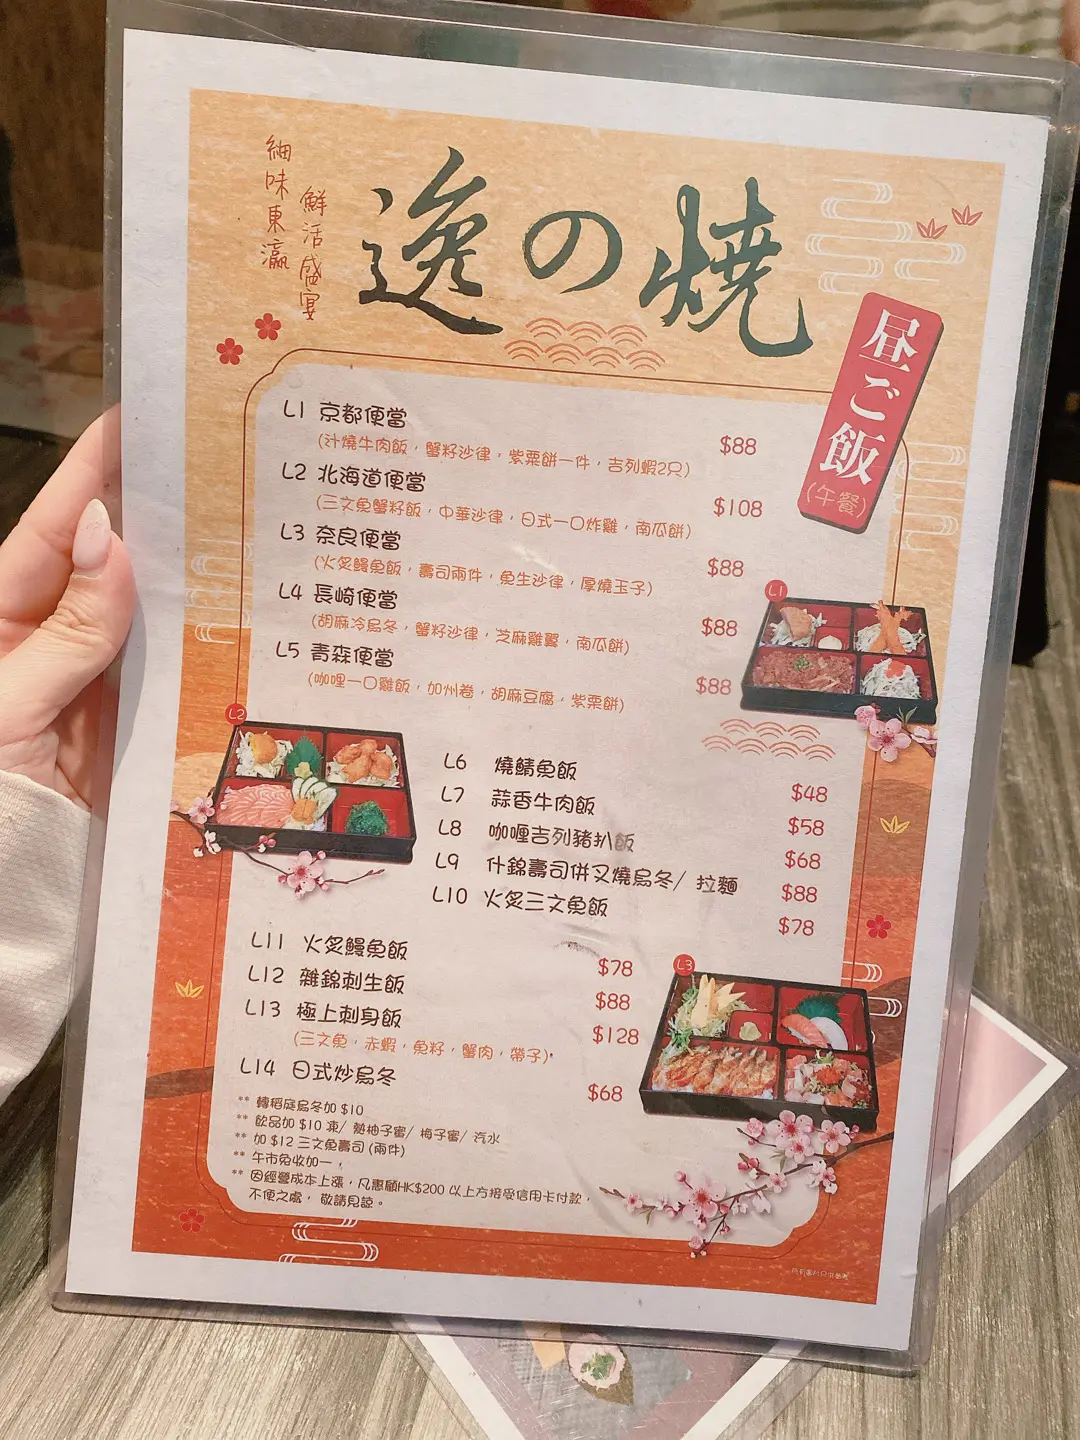 細味東瀛
鮮活盛宴
逸の燒
昼ご飯
(午餐)
L1 京都便當 $88
(汁燒牛肉飯，蟹籽沙律，紫粟餅一件，吉列蝦2只)
L2 北海道便當 $108
(三文魚蟹籽飯，中華沙律，日式一口炸雞，南瓜餅)
L3 奈良便當 $88
(火炙鰻魚飯，壽司兩件，魚生沙律，厚燒玉子)
L4 長崎便當 $88
(胡麻冷烏冬，蟹籽沙律，芝麻雞翼，南瓜餅)
L5 青森便當 $88
(咖哩一口雞飯，加州卷，胡麻豆腐，紫粟餅)
L1
L2
L6 燒鯖魚飯 $48
L7 蒜香牛肉飯 $58
L8 咖喱吉列豬扒飯 $68
L9 什錦壽司併叉燒烏冬/ 拉麵 $88
L10 火炙三文魚飯 $78
L11 火炙鰻魚飯 $78
L12 雜錦刺生飯 $88
L13 極上刺身飯 $128
(三文魚，赤蝦，魚籽，蟹肉，帶子)
L14 日式炒烏冬 $68
L3
** 轉稻庭烏冬加 $10
** 飲品加 $10 凍/ 熱柚子蜜/ 梅子蜜/ 汽水
** 加 $12 三文魚壽司 (兩件)
** 午市免收加一，
** 因經營成本上漲，凡惠顧HK$200 以上方接受信用卡付款，
不便之處，敬請見諒。